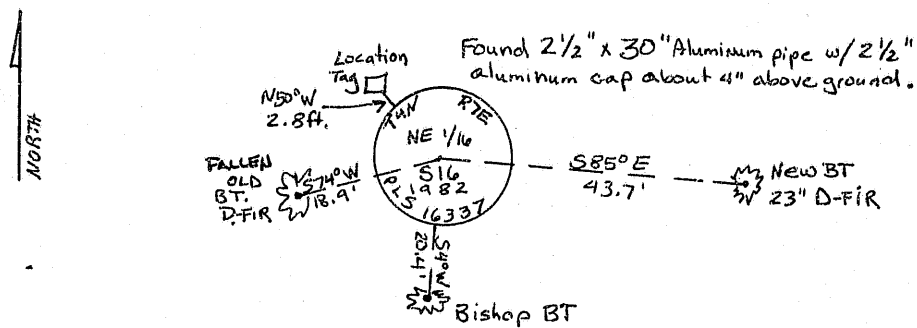 NORTH
Found 2½" x 30" Aluminum pipe w/ 2½"
aluminum cap about 4" above ground.
Location
Tag
N50°W
2.8ft.
T4N R7E
NE 1/16
S16
1982
PLS 16337
FALLEN
OLD
BT.
D-FIR
S74°W
18.9'
S85°E
43.7'
New BT
23" D-FIR
S4°W
20.4'
Bishop BT